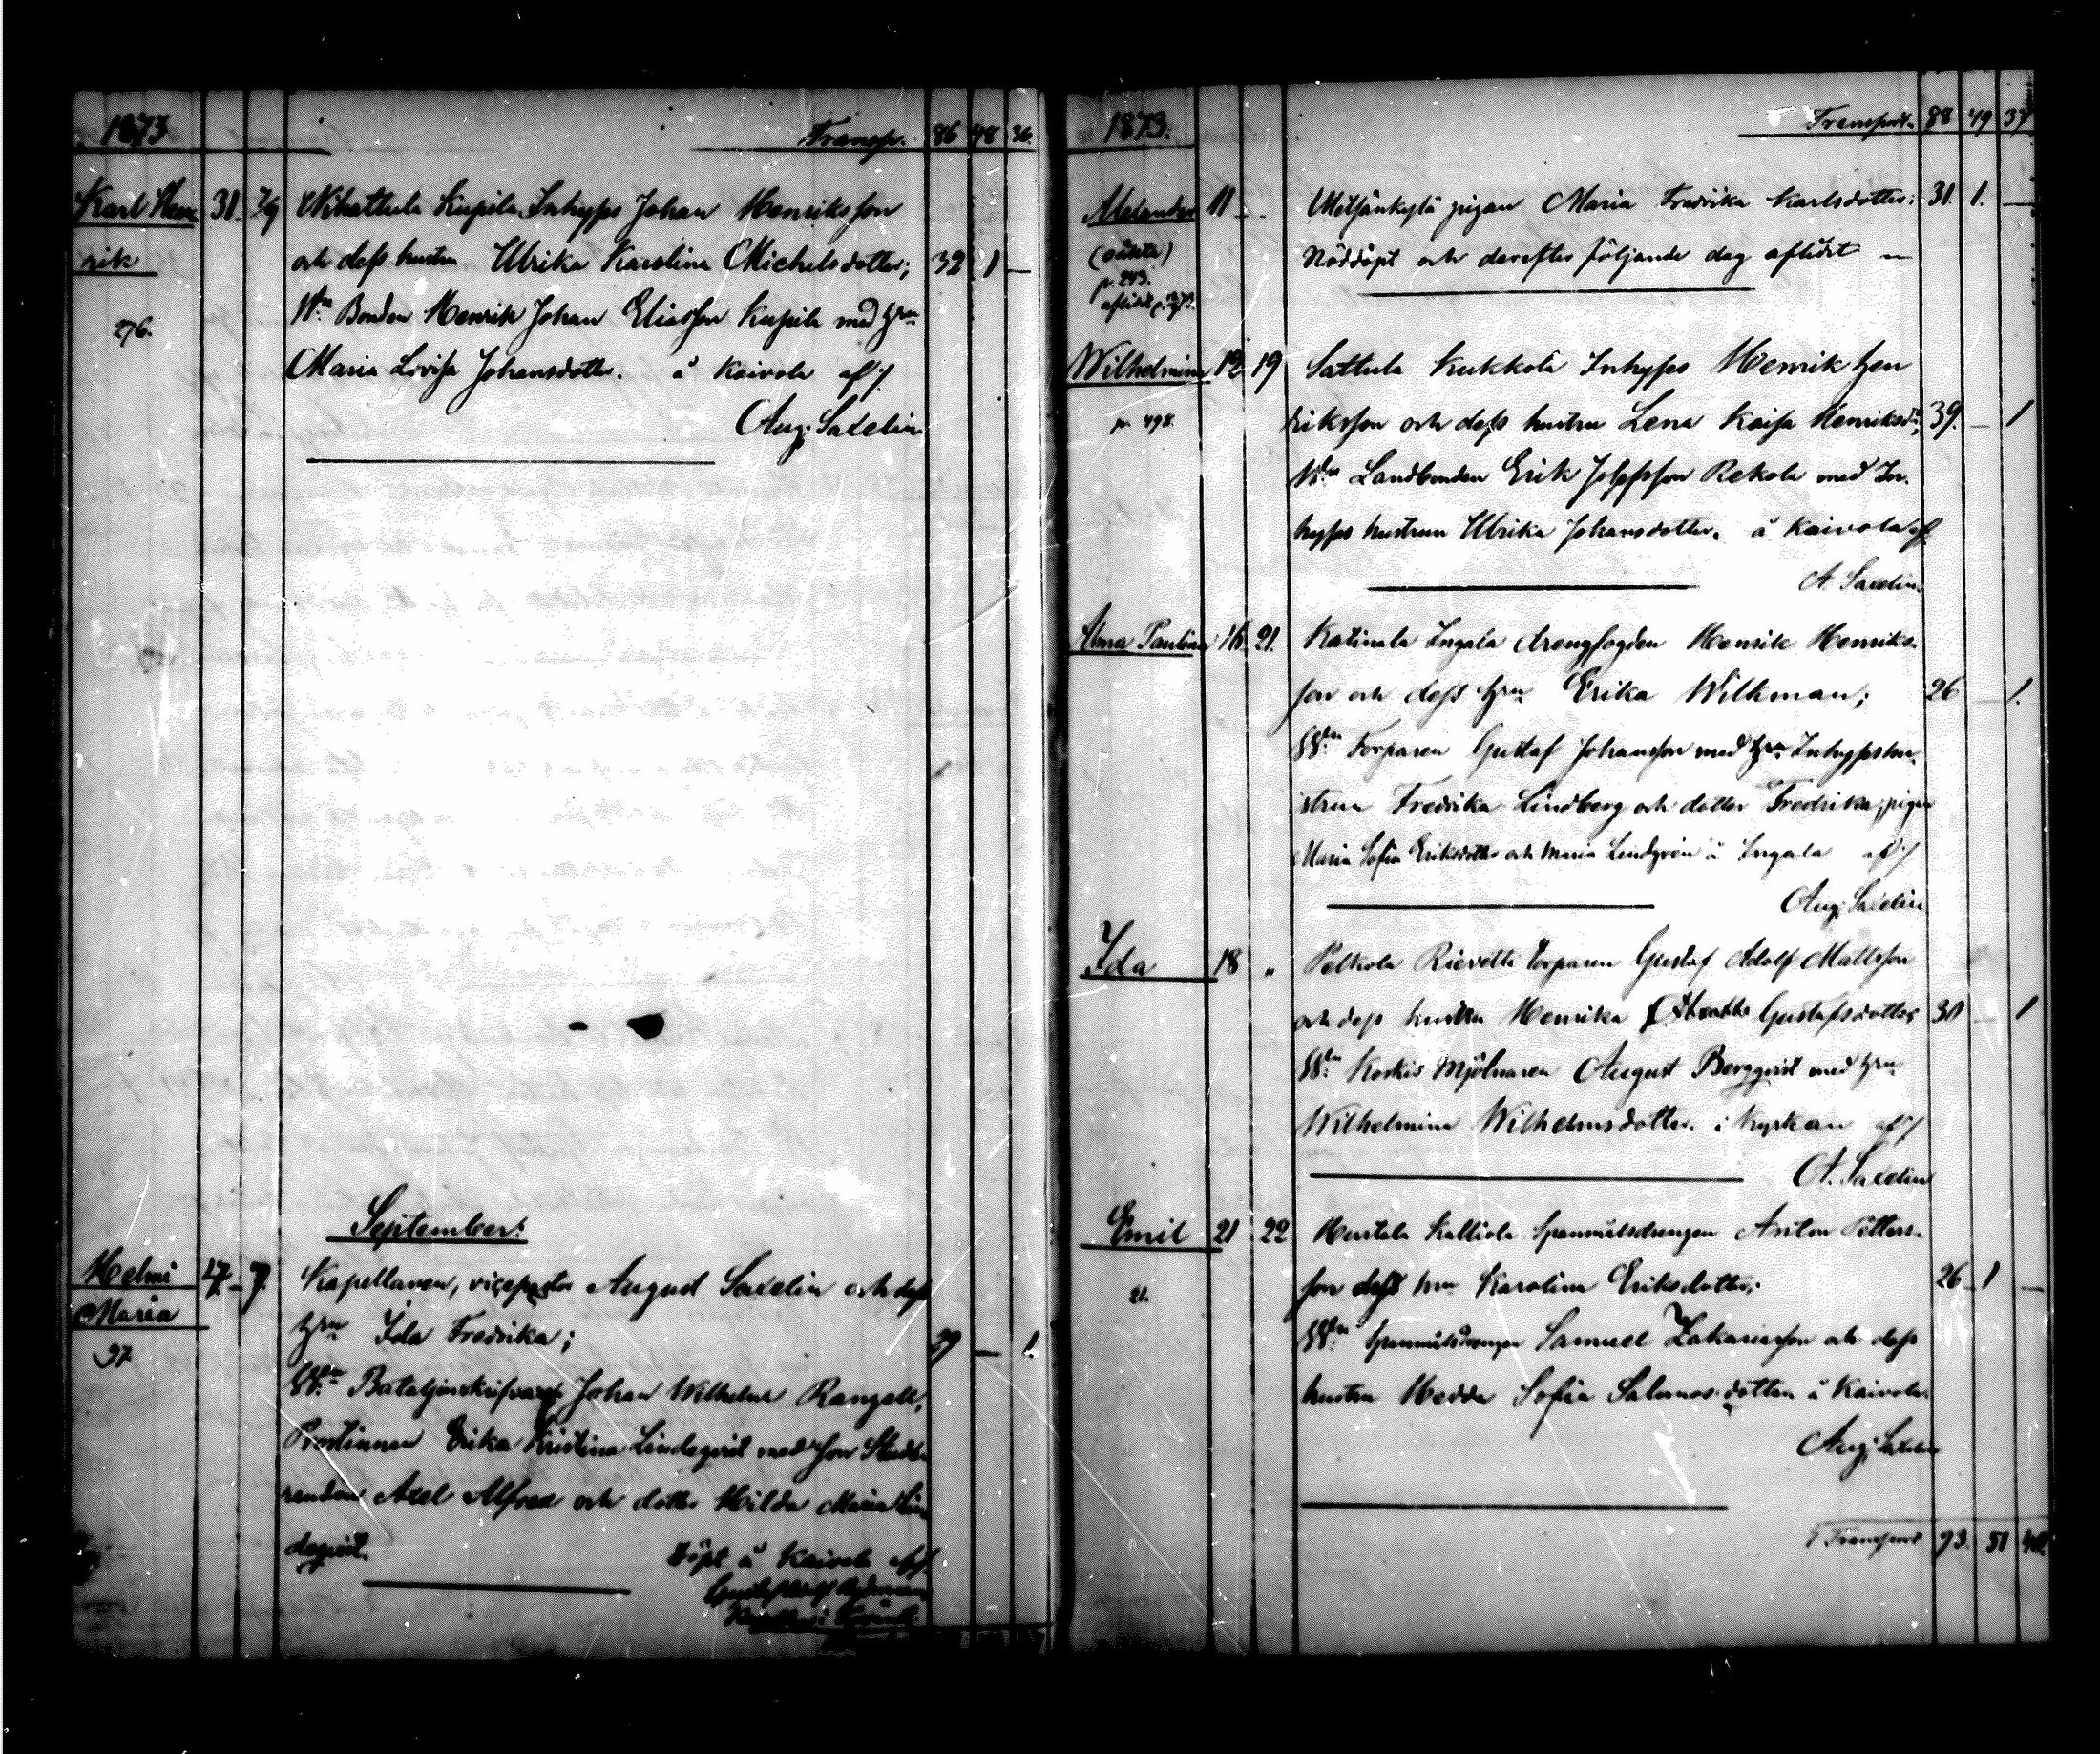 1873
Transp. 86 48 36.
Karl Hen- 31. 7/9 Wihattula Kupila Inhyses Johan Henriksson
rik och dess hustru Ulrika Karolina Michelsdotter; 32 1 —
276. Wtn: Bonden Henrik Johan Eliasson Kupila med hru
Maria Lovisa Johansdotter. å Kaivola af
Aug. Saxelin
September:
Helmi 27. 7. Kapellanen, vicepastor August Saxelin och dess
Maria hru Ida Fredrika; 29 — 1.
97 Wtn: Bataljonskrifvaren Johan Wilhelm Rangell,
Prostinnan Erika Kristina Lindeqvist med son Stude-
randen Axel Alfred och dotter Hilda Maria Lin-
deqvist. Döpt å Kaivola af
1873.
Transport. 88 49 37
Alexander 11 Metsänkylä pigan Maria Fredrika Karlsdotter; 31. 1. —
(oäkta) Nöddöpt och derefter följande dag aflidit
p. 243.
Wilhelmina 12. 19 Sattula Kukkola Inhyses Henrik Hen
p. 498. driksson och dess hustru Lena Kaisa Henriksdr, 39. — 1
Wtn: Landbonden Erik Josefsson Rekola med In-
hyses hustrun Ulrika Johansdotter. å Kaivola af
A. Saxelin.
Alma Paulina 16. 21. Katinala Ingala Arengfogden Henrik Henriks-
son och dess hru Erika Wilkman; 26 — 1.
Wtn: Torparen Gustaf Johansson med hru Inhyseshu-
strun Fredrika Lindberg och dotter Fredrika, pigan
Maria Sofia Eriksdotter och Maria Lindgren å Ingala af
Aug. Saxelin
Ida 18 „ Pelkola Torparen Gustaf Adolf Mattsson
och dess hustru Henrika Gustafsdotter 30 — 1
Wtn: Korkis Mjölnaren August Bergqvist med hru
Wilhelmina Wilhelmsdotter. i kyrkan af
A. Saxelin
Emil 21 22 Hurtala Kalliola Spanmålsdrengen Anton Petters-
21. son dess hru Karolina Eriksdotter; 26 1 —
Wtn: Spanmålsdrengen Samuel Zakariasson och dess
hustru Hedda Sofia Salomosdotter å Kaivola.
Aug. Saxelin
Transport 93. 51 40.